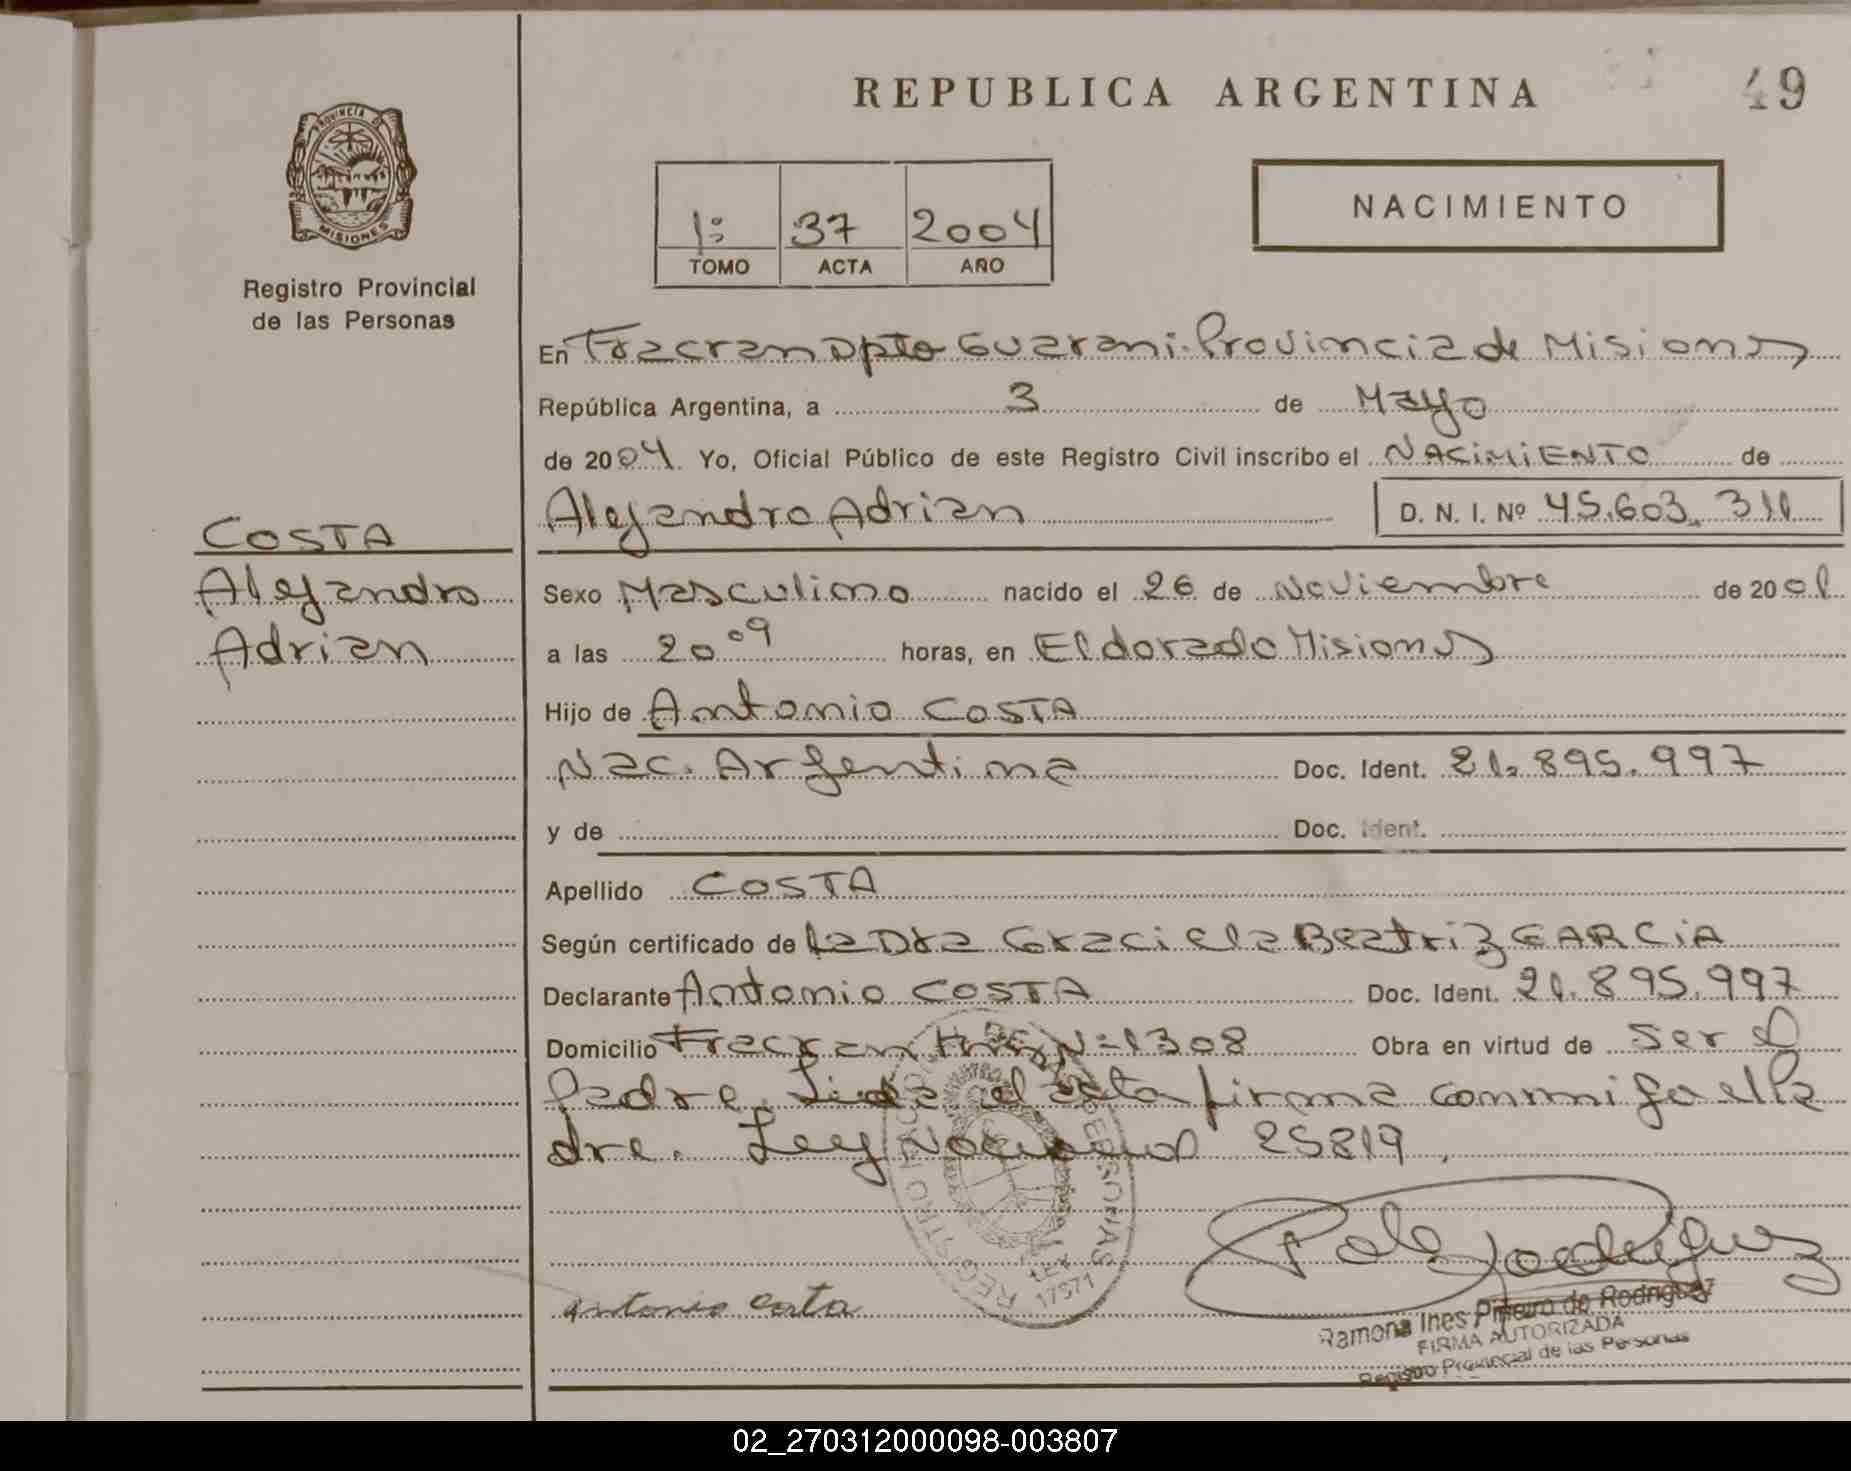 REPUBLICA ARGENTINA
49
PROVINCIA DE
MISIONES
Registro Provincial
de las Personas
1º 37 2004
TOMO ACTA AÑO
NACIMIENTO
En Fracran Dpto Guarani. Provincia de Misiones
República Argentina, a 3 de Mayo
de 2004. Yo, Oficial Público de este Registro Civil inscribo el NACiMiENTO de
Alejandro Adrian D. N. I. Nº 45.603.311
COSTA
Alejandro
Adrian
Sexo Masculino nacido el 26 de Noviembre de 2001
a las 20 09 horas, en Eldorado Misiones
Hijo de Antonio COSTA
Nac. Argentina Doc. Ident. 21.895.997
y de Doc. Ident.
Apellido COSTA
Según certificado de La Dra Graciela Beatriz GARCiA
Declarante Antonio COSTA Doc. Ident. 21.895.997
Domicilio Fracran Nº 1308 Obra en virtud de ser el
Padre. Lida el acta firma conmigo el Pa
dre. Ley Nacional 25819.
REGISTRO PERSONAS
LEY
17571
antonio costa
Ramona Ines Piñeiro de Rodriguez
FIRMA AUTORIZADA
Registro Provincial de las Personas
02_270312000098-003807